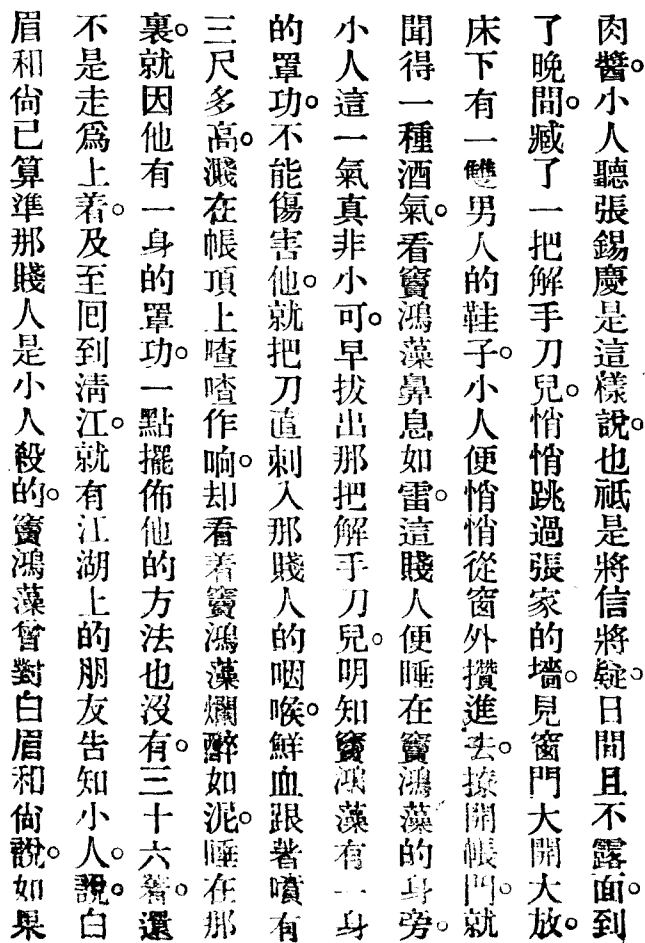 肉醬。小人聽張錫慶是這樣說。也祇是將信將疑。日間且不露面。到
了晚間。臧了一把解手刀兒。悄悄跳過張家的墻。見窗門大開大放。
床下有一雙男人的鞋子。小人便悄悄從窗外攢進去。撩開帳門。就
聞得一種酒氣。看竇鴻藻鼻息如雷。這賤人便睡在竇鴻藻的身旁。
小人這一氣真非小可。早拔出那把解手刀兒。明知竇鴻藻有一身
的罩功。不能傷害他。就把刀直刺入那賤人的咽喉。鮮血跟著噴有
三尺多高。濺在帳頂上喳喳作响。却看着竇鴻藻爛醉如泥。睡在那
裏。就因他有一身的罩功。一點擺佈他的方法也沒有。三十六著。還
不是走爲上着。及至回到清江。就有江湖上的朋友告知小人。說。白
眉和尙已算準那賤人是小人殺的。竇鴻藻曾對白眉和尙說。如果